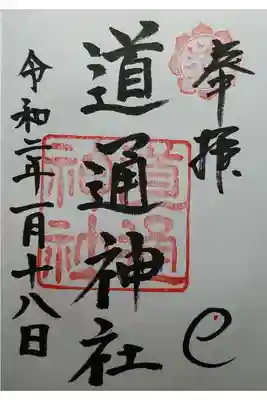 奉拝
道通神社
令和二年一月十八日
道通
神社